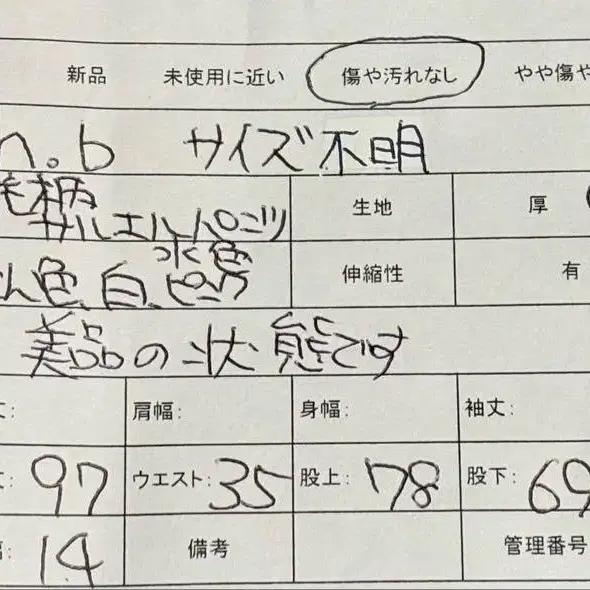 新品 未使用に近い 傷や汚れなし やや傷や
n.b サイズ不明
柄 生地 厚
サルエルパンツ
水色
色、白、ピンク 伸縮性 有
美品の状態です
丈: 肩幅: 身幅: 袖丈:
97 ウエスト: 35 股上: 78 股下: 69
14 備考 管理番号